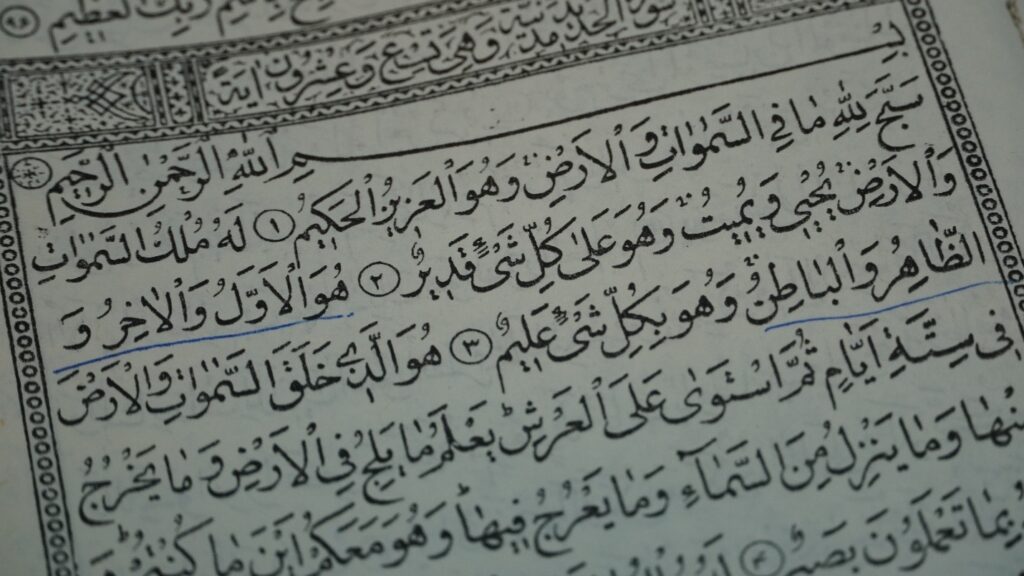 رَبِّكَ الْعَظِيمِ ٩٦
سورة الحديد مدنية وهى تسع وعشرون اية
بِسْمِ اللّٰهِ الرَّحْمٰنِ الرَّحِيمِ
سَبَّحَ لِلّٰهِ مَا فِى السَّمٰوَاتِ وَالْاَرْضِ وَهُوَ الْعَزِيزُ الْحَكِيمُ ١ لَهُ مُلْكُ السَّمٰوَاتِ
وَالْاَرْضِ يُحْيٖى وَيُمِيتُ وَهُوَ عَلٰى كُلِّ شَىْءٍ قَدِيرٌ ٢ هُوَ الْاَوَّلُ وَالْاٰخِرُ وَ
الظَّاهِرُ وَالْبَاطِنُ وَهُوَ بِكُلِّ شَىْءٍ عَلِيمٌ ٣ هُوَ الَّذِى خَلَقَ السَّمٰوَاتِ وَالْاَرْضَ
فِى سِتَّةِ اَيَّامٍ ثُمَّ اسْتَوٰى عَلَى الْعَرْشِ يَعْلَمُ مَا يَلِجُ فِى الْاَرْضِ وَمَا يَخْرُجُ
مِنْهَا وَمَا يَنْزِلُ مِنَ السَّمَآءِ وَمَا يَعْرُجُ فِيهَا وَهُوَ مَعَكُمْ اَيْنَ مَا كُنْتُمْ وَ
بِمَا تَعْمَلُونَ بَصِيرٌ ٤